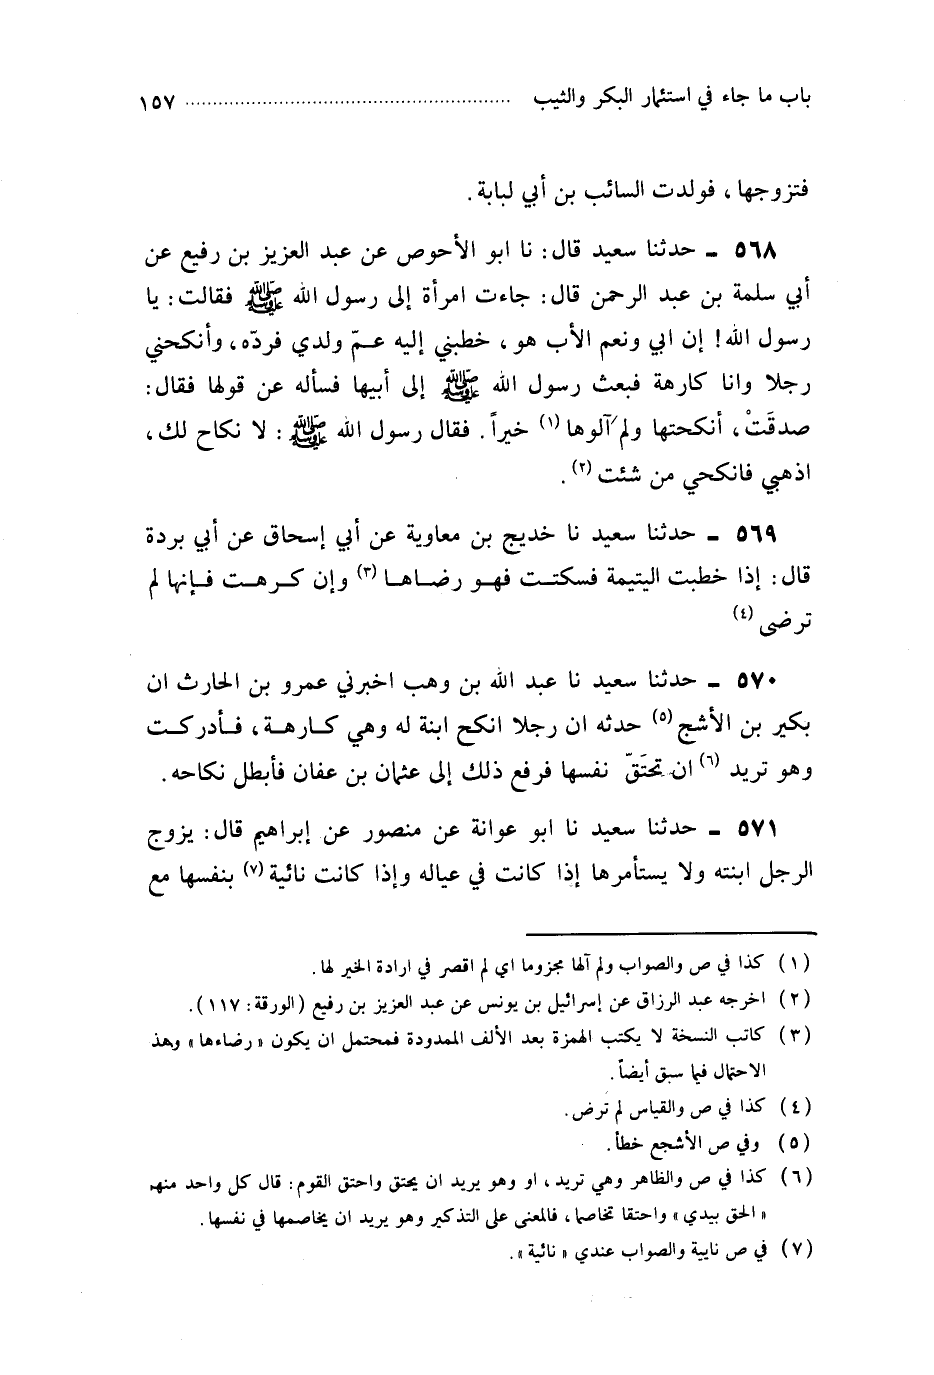 باب ما جاء في استئمار البكر والثيب ........................................................ ١٥٧
فتزوجها ، فولدت السائب بن أبي لبابة .
٥٦٨ ـ حدثنا سعيد قال : نا ابو الأحوص عن عبد العزيز بن رفيع عن
أبي سلمة بن عبد الرحمن قال : جاءت امرأة إلى رسول الله ﷺ فقالت : يا
رسول الله ! إن ابي ونعم الأب هو ، خطبني إليه عـمّ ولدي فردّه ، وأنكحني
رجلا وانا كارهة فبعث رسول الله ﷺ إلى أبيها فسأله عن قولها فقال :
صدقَتْ ، أنكحتها ولم آلوها (١) خيراً . فقال رسول الله ﷺ : لا نكاح لك ،
اذهبي فانكحي من شئت (٢) .
٥٦٩ ـ حدثنا سعيد نا خديج بن معاوية عن أبي إسحاق عن أبي بردة
قال : إذا خطبت اليتيمة فسكتـت فهـو رضـاهـا (٣) وإن كـرهـت فـإنها لم
ترضى (٤)
٥٧٠ ـ حدثنا سعيد نا عبد الله بن وهب اخبرني عمرو بن الحارث ان
بكير بن الأشج (٥) حدثه ان رجلا انكح ابنة له وهي كـارهـة ، فـأدركـت
وهو تريد (٦) ان تحتَقّ نفسها فرفع ذلك إلى عثمان بن عفان فأبطل نكاحه .
٥٧١ ـ حدثنا سعيد نا ابو عوانة عن منصور عن إبراهيم قال : يزوج
الرجل ابنته ولا يستأمرها إذا كانت في عياله وإذا كانت نائية (٧) بنفسها مع
(١) كذا في ص والصواب ولم آلها مجزوما اي لم اقصر في ارادة الخير لها .
(٢) اخرجه عبد الرزاق عن إسرائيل بن يونس عن عبد العزيز بن رفيع (الورقة : ١١٧) .
(٣) كاتب النسخة لا يكتب الهمزة بعد الألف الممدودة فمحتمل ان يكون « رضاءها » وهذ
الاحتمال فيما سبق أيضاً .
(٤) كذا في ص والقياس لم تَرض .
(٥) وفي ص الأشجع خطأ .
(٦) كذا في ص والظاهر وهي تريد ، او وهو يريد ان يحتق واحتق القوم : قال كل واحد منهم
« الحق بيدي » واحتقا تخاصما ، فالمعنى على التذكير وهو يريد ان يخاصمها في نفسها .
(٧) في ص نايية والصواب عندي « نائية » .